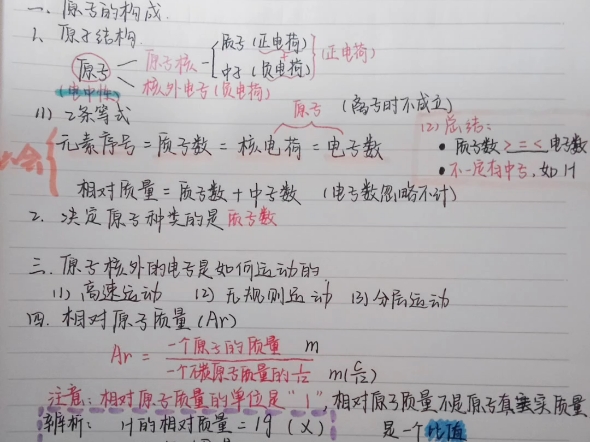 一、原子的构成.
1、原子结构.
原子 原子核 质子(正电荷) (正电荷)
中子(负电荷)
(电中性) 核外电子(负电荷)
原子 (离子时不成立)
(1) 2条等式
元素序号 = 质子数 = 核电荷 = 电子数
(2) 总结:
• 质子数 > = < 电子数
• 不一定有中子, 如 H
相对质量 = 质子数 + 中子数 (电子数忽略不计)
2、决定原子种类的是质子数
三、原子核外的电子是如何运动的
(1) 高速运动 (2) 无规则运动 (3) 分层运动
四、相对原子质量(Ar)
Ar = 一个原子的质量 m
一个碳原子质量的 1/12 m(C/12)
注意: 相对原子质量的单位是"1", 相对原子质量不是原子真实质量
辨析: H的相对质量 = 1g (×) 是一个比值